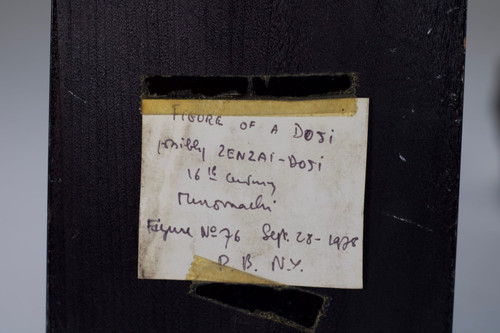 FIGURE OF A DOJI
possibly ZENZAI-DOJI
16th century
Muromachi
Figure No 76 Sept. 28-1978
P. B. N.Y.